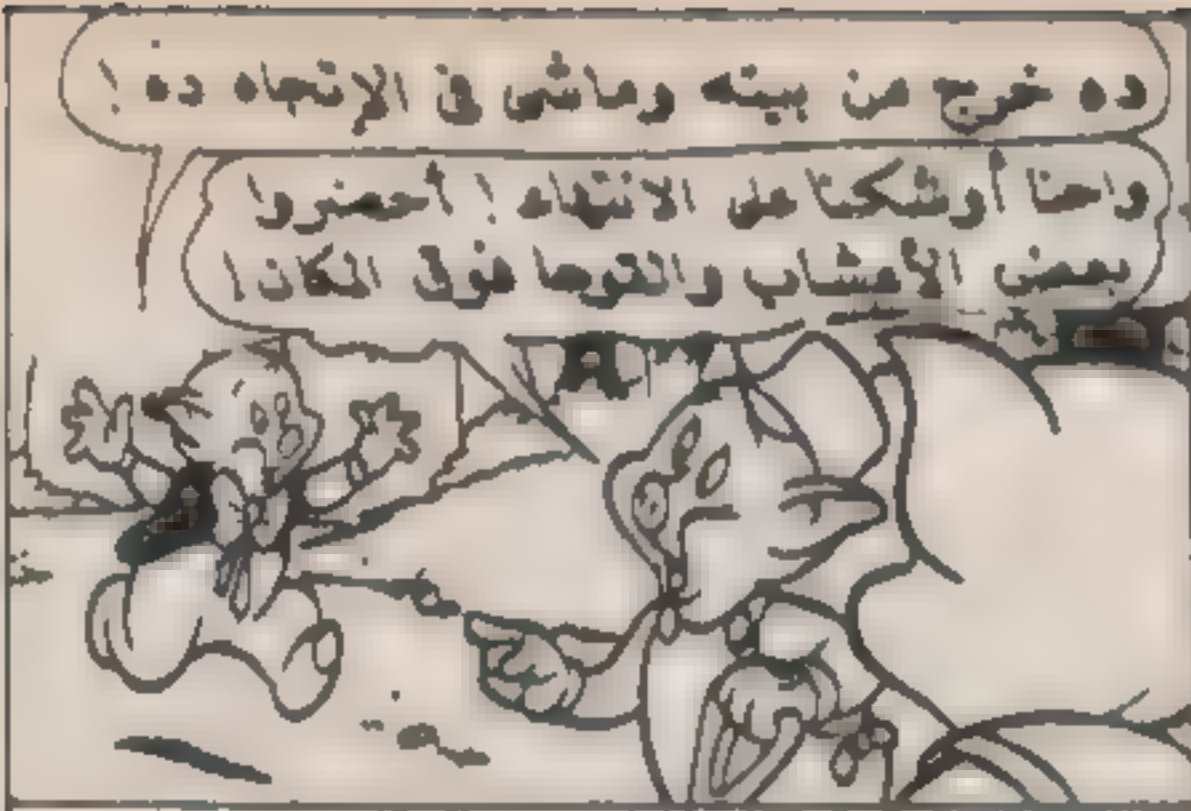 ده خرج من بيته وماشى فى الإتجاه ده !
واحنا أوشكنا على الانتهاء ! أحضروا
بعض الأعشاب والقوها فوق المكان !